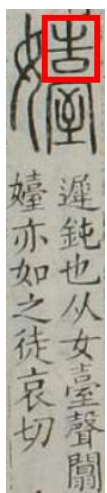 嬯
遲鈍也从女臺聲闒
嬯亦如之徒哀切